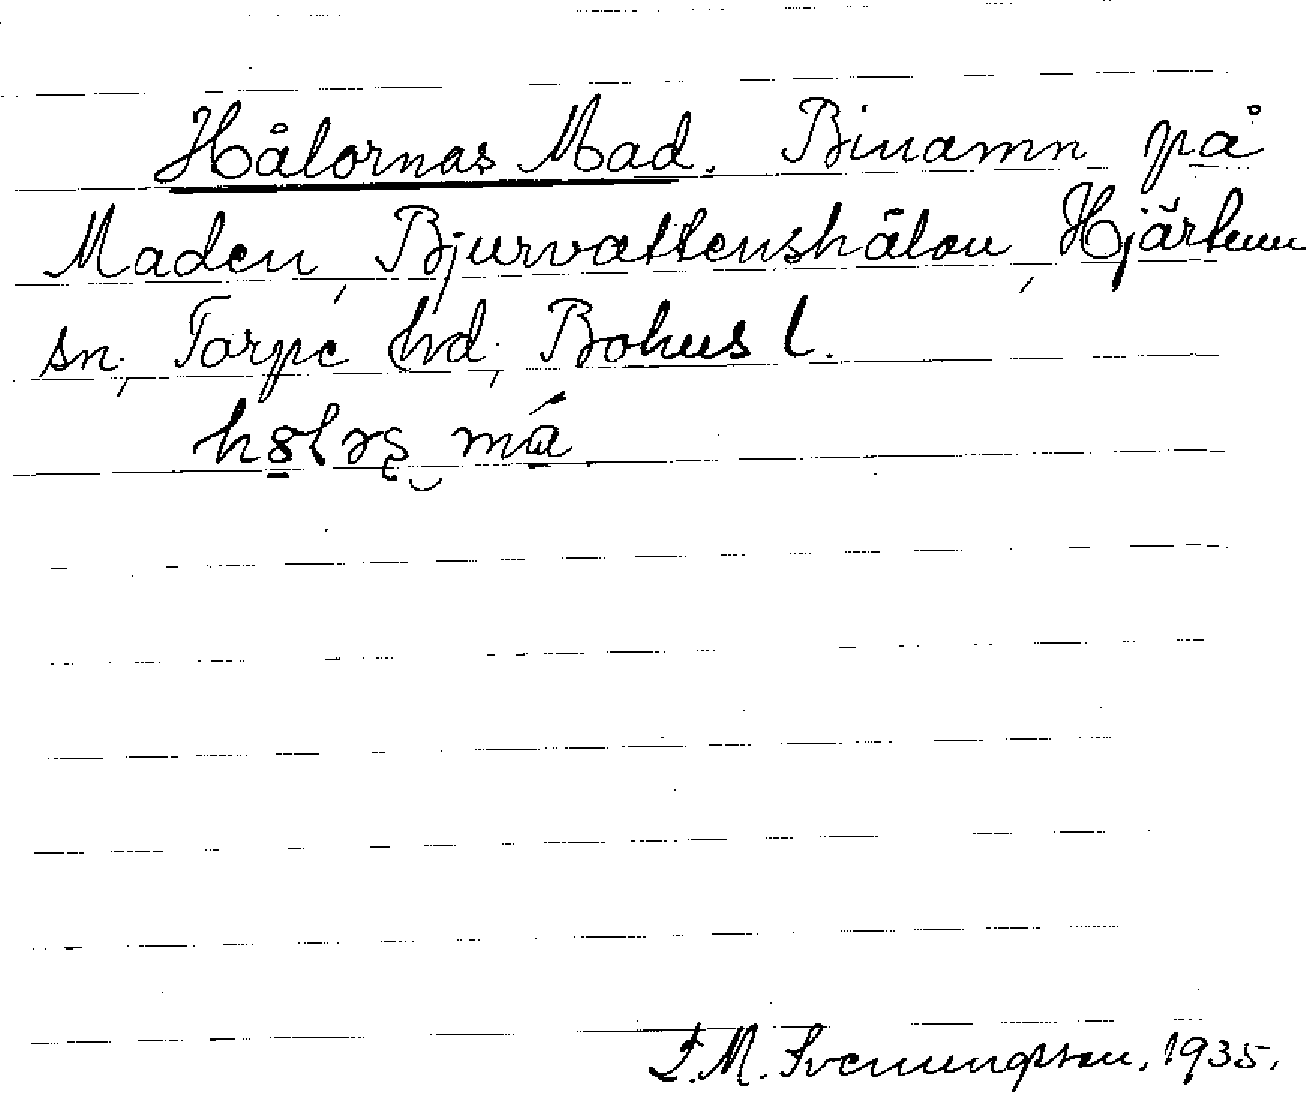 Hålornas Mad. Binamn på
Maden, Bjurvattenshålan, Hjärtum
sn, Torpe hd, Bohus l.
má
F.M. Svenungsson, 1935.